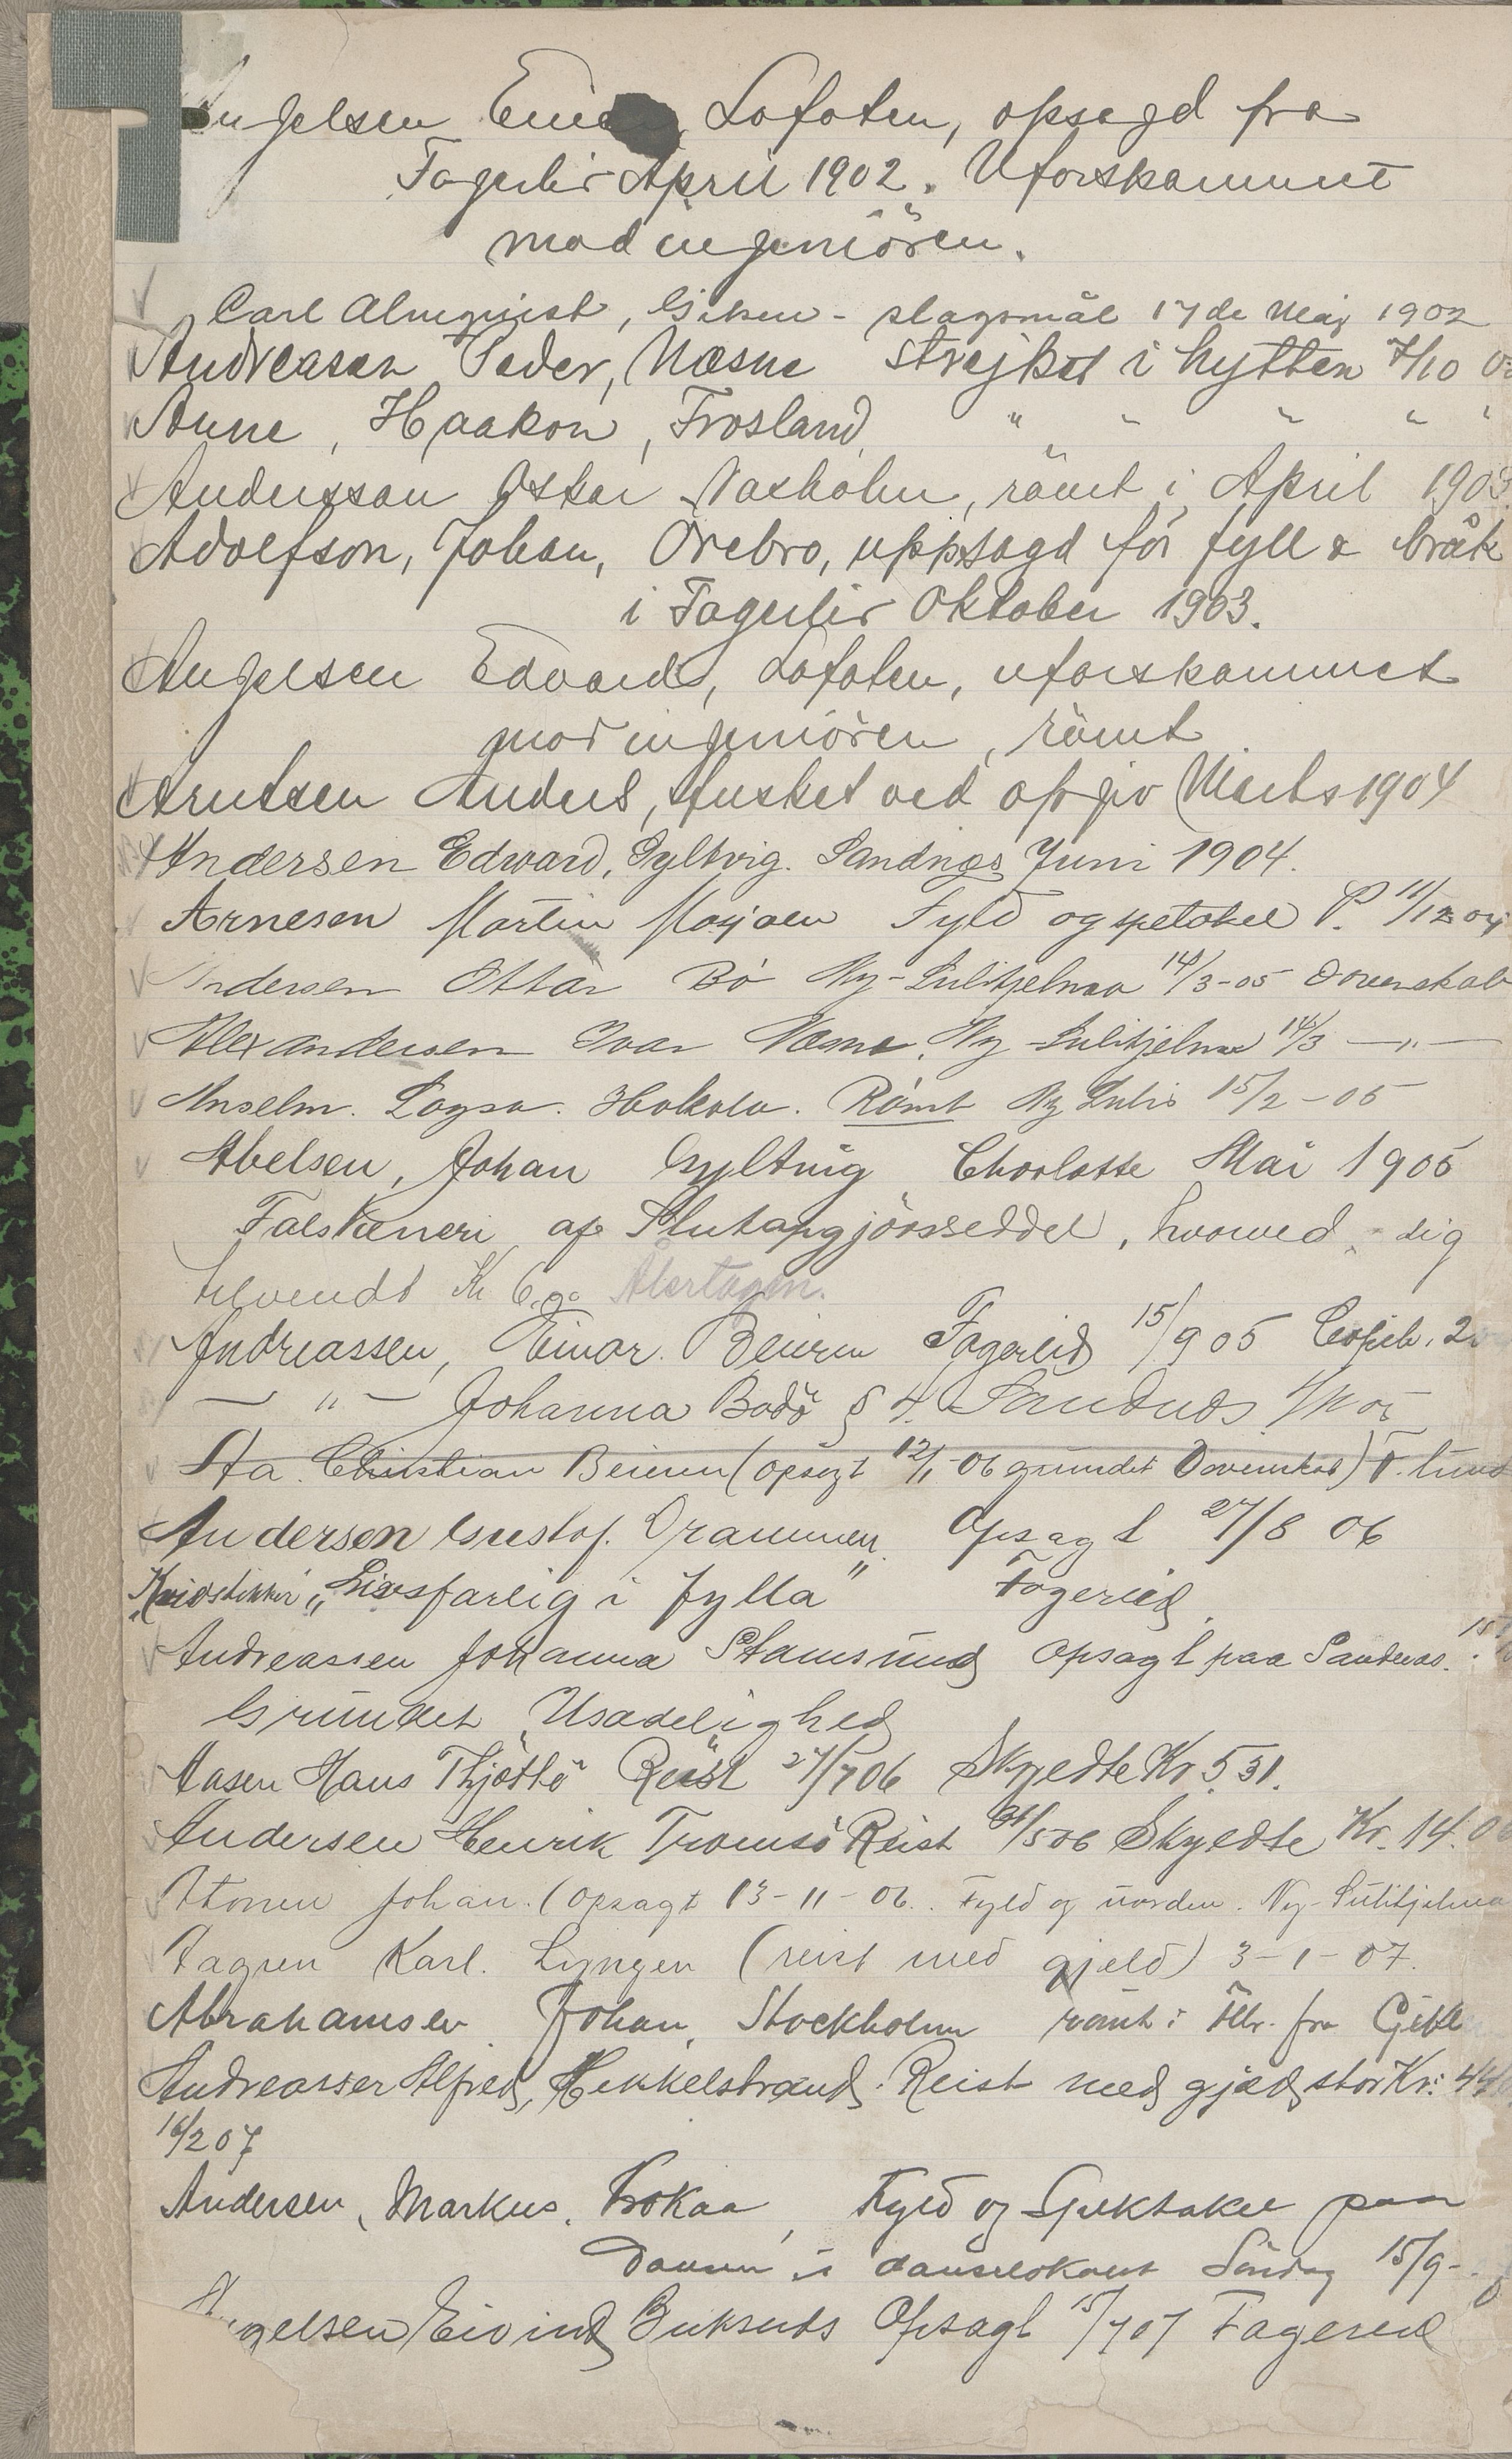 Angelsen Lofoten, opsagd fra
Fagerlir April 1902. Uforskammet
mod ingeniören.
Carl Almqvist, Giken - slagsmål 17de Maj 1902
Andreasen Peder, Næsne Strejket i hytten 7/10
Aune, Haakon, Frosland " " " " "
Andersson Oskar Vaxholm, römt i April 1903
Adolfson, Johan, Örebro, uppsagd för fyll & bråk
i Fagerlir Oktober 1903.
Angelsen Edvard, Lofoten, uforskammet
mod ingeniören, römt
Arntsen Anders, fusket ved opgjv Marts 1904
Andersen Edward, Gyltvig. Sandnæs Juni 1904.
Arnesen Martin Mosjøen Fyld og spetakel P. 11/12 04
Andersen Ottar Bö Ny-Sulitjelma 14/3-05 Dovenskab
Alexandersen Ivar Næsne, Ny-Sulitjelma 14/3 — " —
Anselm. Logsa. Hokolo. Römt Ny Sulis 15/2-05
Abelsen, Johan Gyltvig Charlotte Mai 1905
Falskneri af Slutopgjörsseddel, hvorved sig
tilvendt Kr 6.00 Återtagen.
Andreassen, Einar. Beiern Fagerlid 15/9 05
— " — Johanna Bodö § 4. Sandnes
Aa. Christian Beiern (opsagt 12/1-06 grundet Dovenskab)
Andersen Gustaf. Drammen. Opsagt 27/8 06
Knivstikker „Livsfarlig i fylla" Fagerlid
Andreassen Johanna Stamsund opsagt paa Sandnæs.
Grundet Usædelighed
Aasen Hans Thjöttö Reist 27/7 06 Skyldte Kr. 5.31.
Andersen Henrik Tromsö Reist 31/5 06 Skyldte Kr. 14.00
Johan. (opsagt 13-11-06. Fyld og uorden. Ny-Sulitjelma
Karl. Lyngen (reist med gjeld) 3-1-07.
Abrahamsen Johan, Stockholm römt i fra
Andreassen Alfred, Hekkelstrand. Reist med gjæld stor Kr: 44
16/2 07
Andersen, Markus, Trokaa, Fyld og Spektakel paa
Dansen i danselokalet Söndag 15/9-
Angelsen Eivind Buksnes Opsagt 15/7 07 Fagerlid